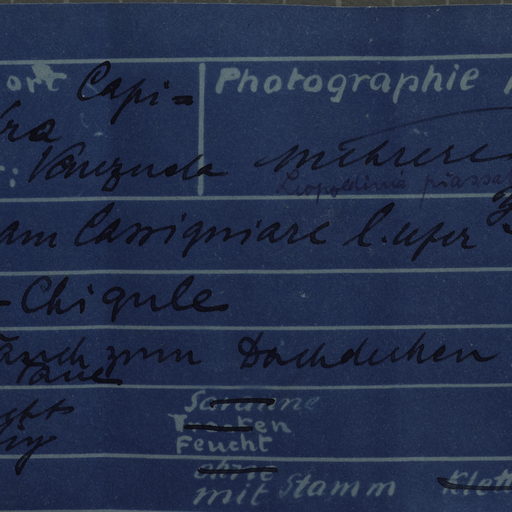 ort Capi=
Photographie
Venezuela mehrere
Leopoldinia piassa
am Cassiquiare l. ufer
- Chiqule
auch zum Dachdecken
Taue
Savanne
Trocken
Feucht
ohne
mit Stamm Klett